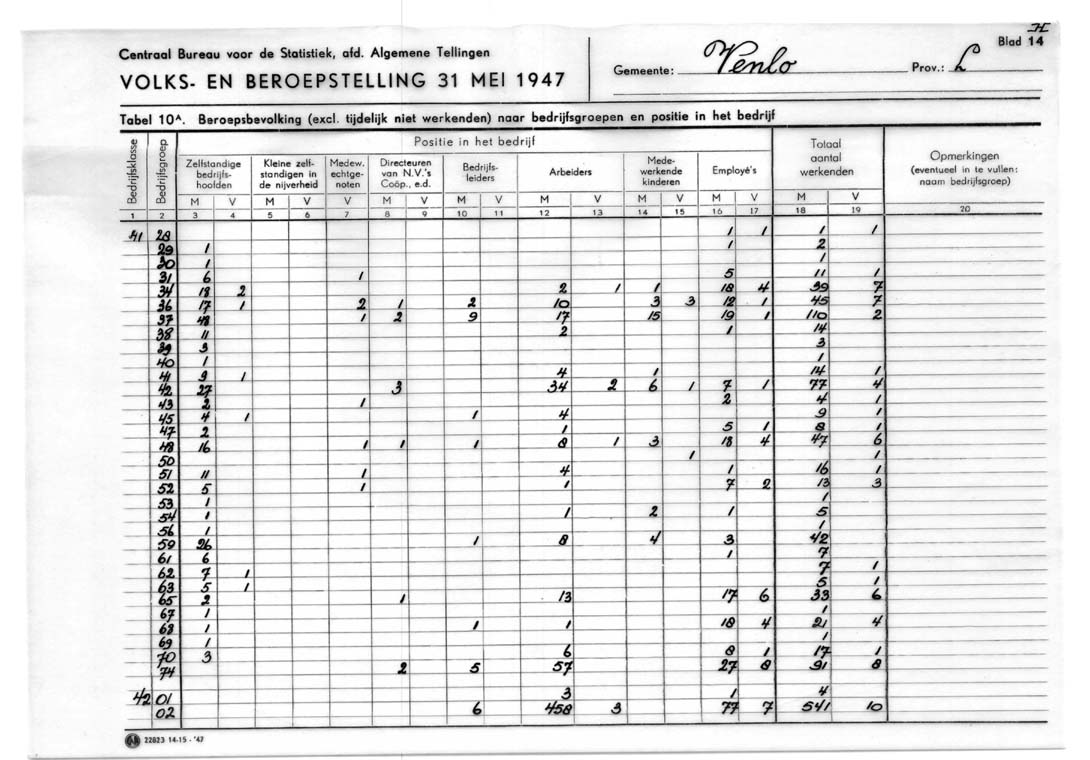 H
Blad 14
Centraal Bureau voor de Statistiek, afd. Algemene Tellingen
VOLKS- EN BEROEPSTELLING 31 MEI 1947
Gemeente: Venlo Prov.: L
Tabel 10A. Beroepsbevolking (excl. tijdelijk niet werkenden) naar bedrijfsgroepen en positie in het bedrijf
Bedrijfsklasse Bedrijfsgroep Positie in het bedrijf Totaal aantal werkenden Opmerkingen (eventueel in te vullen: naam bedrijfsgroep)
Zelfstandige bedrijfshoofden Kleine zelfstandigen in de nijverheid Medew. echtgenoten Directeuren van N.V.'s Coöp., e.d. Bedrijfsleiders Arbeiders Medewerkende kinderen Employé's
M V M V V M V M V M V M V M V M V
1 2 3 4 5 6 7 8 9 10 11 12 13 14 15 16 17 18 19 20
41 28 1 1 1 1
29 1 1 2
30 1 1
31 6 1 5 11 1
34 18 2 2 1 1 18 4 39 7
36 17 1 2 1 2 10 3 3 12 1 45 7
37 48 1 2 9 17 15 19 1 110 2
38 11 2 1 14
39 3 3
40 1 1
41 9 1 4 1 14 1
42 27 3 34 2 6 1 7 1 77 4
43 2 1 2 4 1
45 4 1 1 4 9 1
47 2 1 5 1 8 1
48 16 1 1 1 8 1 3 18 4 47 6
50 1 1
51 11 1 4 1 16 1
52 5 1 1 7 2 13 3
53 1 1
54 1 1 2 1 5
56 1 1
59 26 1 8 4 3 42
61 6 1 7
62 7 1 7 1
63 5 1 5 1
65 2 1 13 17 6 33 6
67 1 1
68 1 1 1 18 4 21 4
69 1 1
70 3 6 8 1 17 1
74 2 5 57 27 8 91 8
42 01 3 1 4
02 6 458 3 77 7 541 10
22823 14-15 - '47